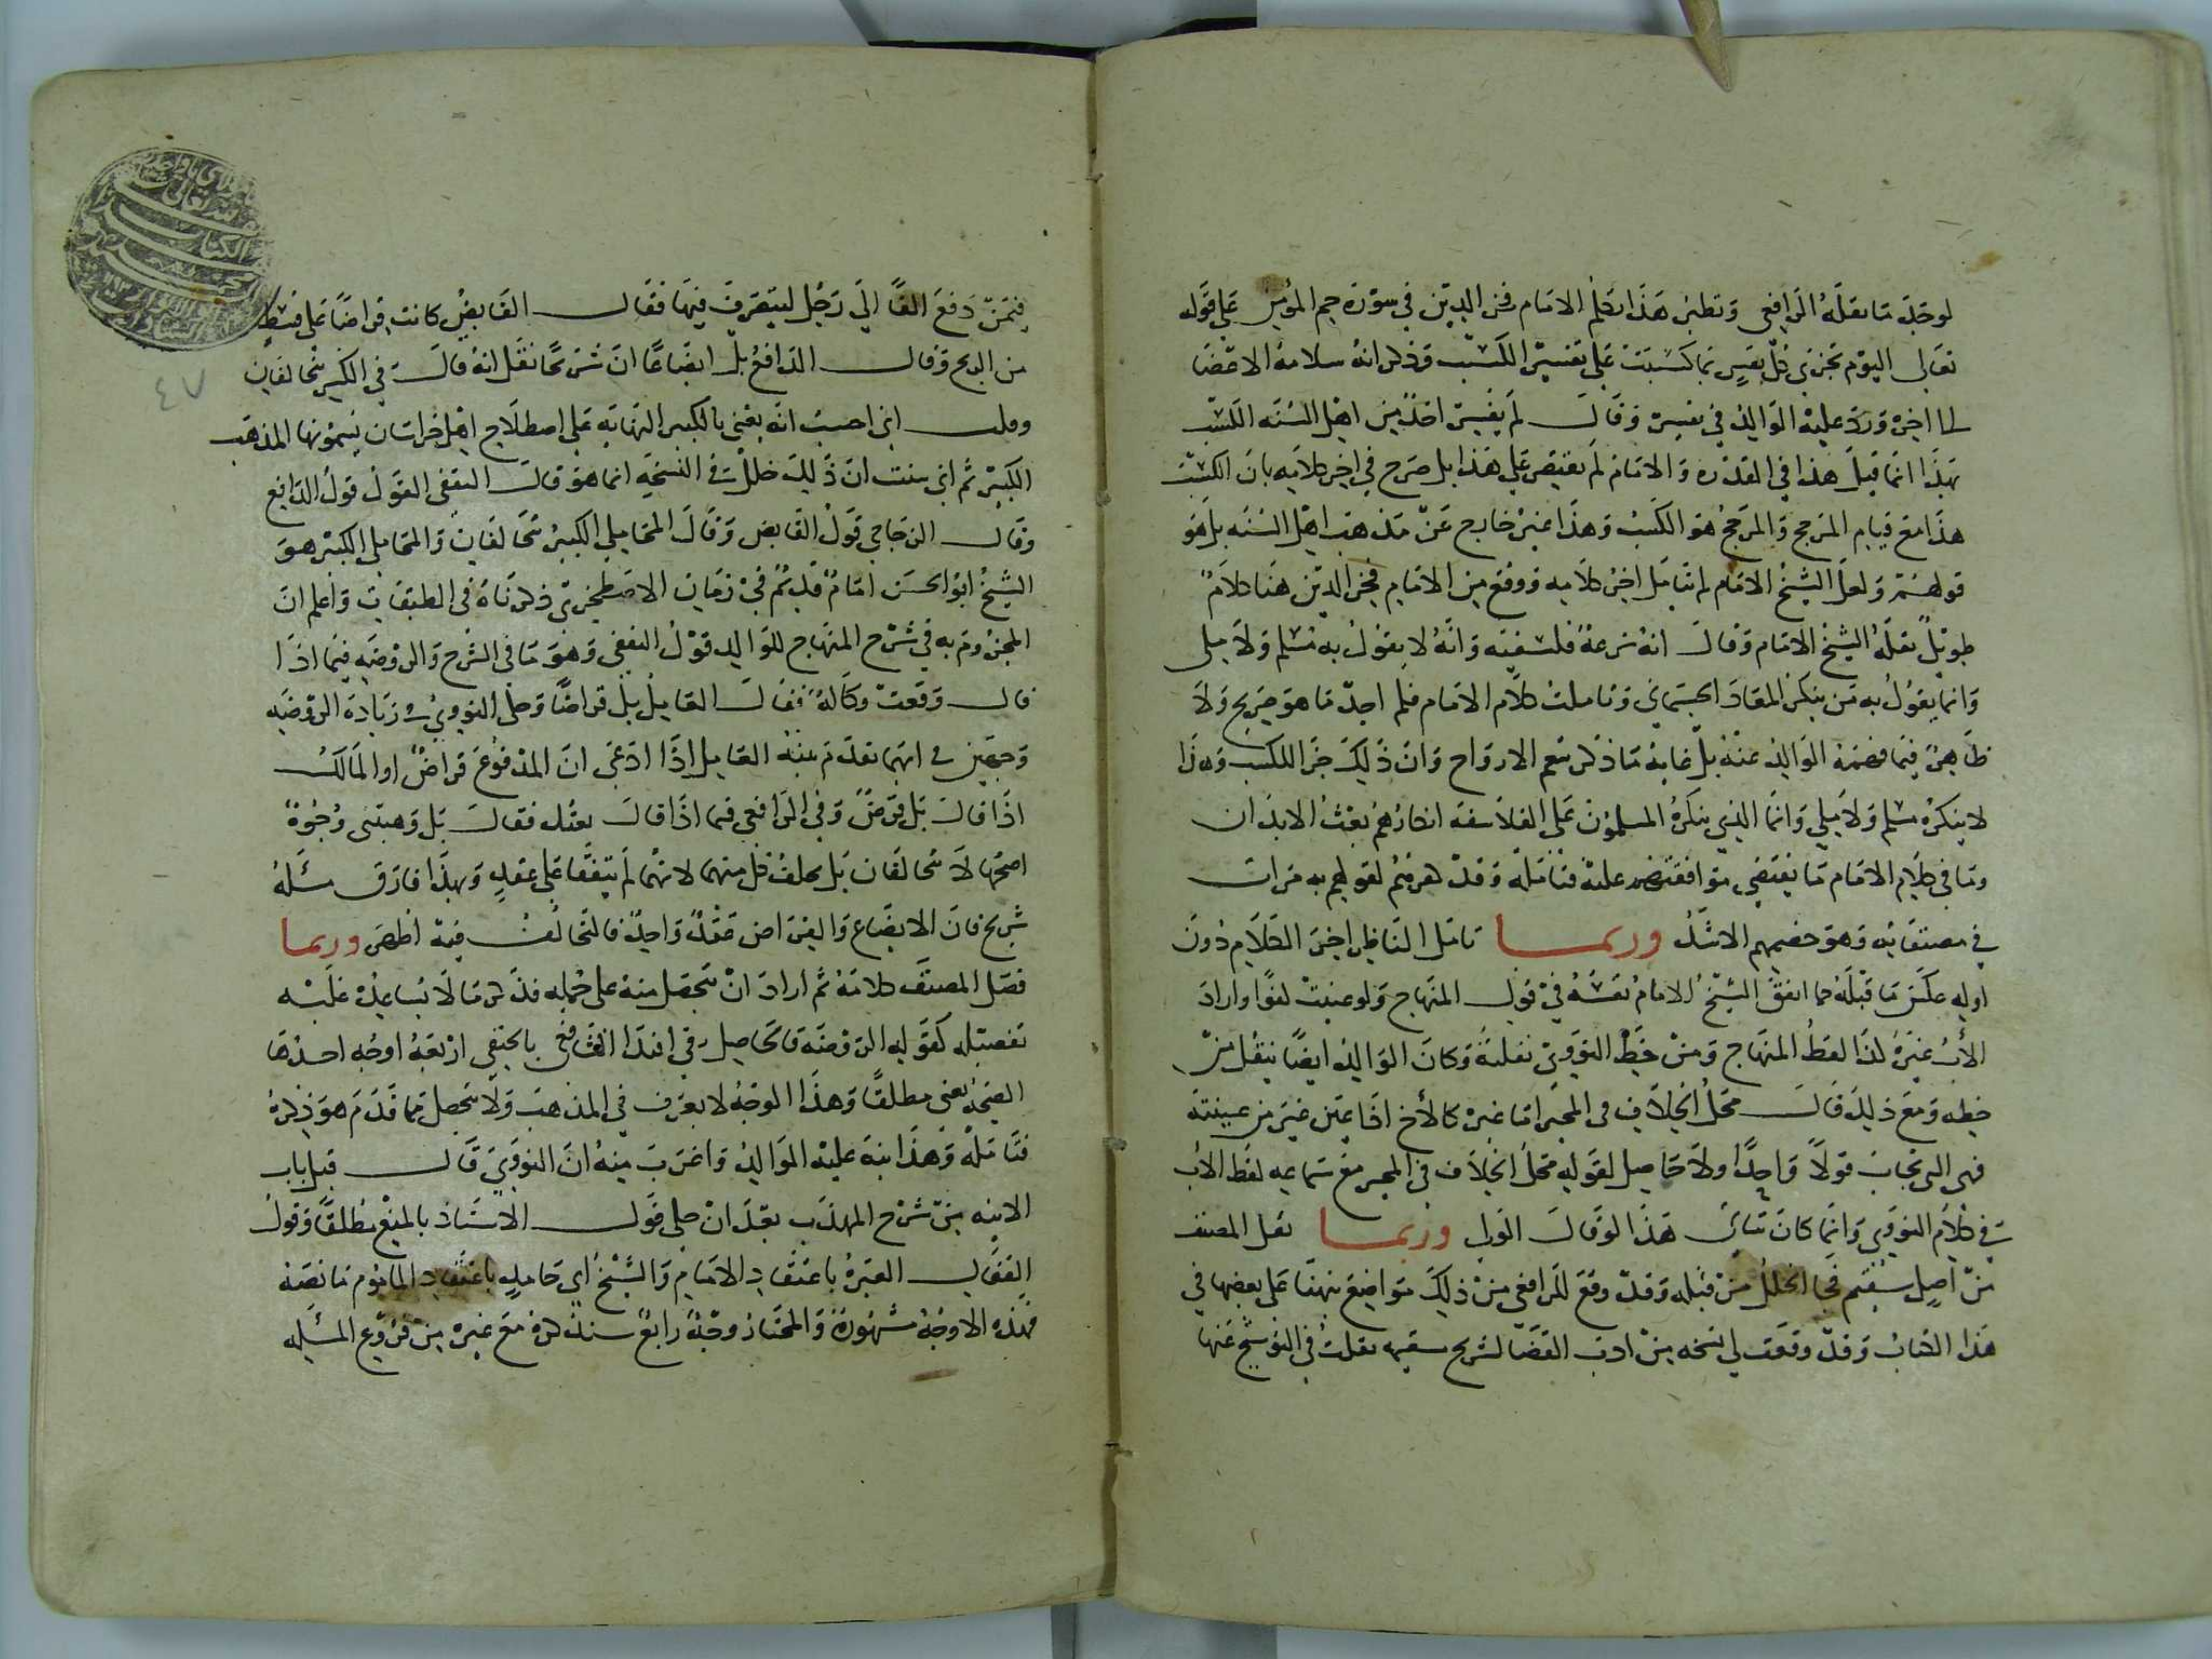 لوجد ما نقله الرافعي ونظير هذا تكلم الامام فخر الدين في سورة حم المؤمن على قوله
تعالى اليوم تجزى كل نفس بما كسبت على تفسير الكسب وذكر انه سلامة الاعضا
الى اخره ورد عليه الوالد في تفسيره وقال لم يفسر احد من اهل السنة الكسب
بهذا انما قيل هذا في القدرة والامام لم يقتصر على هذا بل صرح في اخر كلامه بان الكسب
هذا مع قيام المرجح والمرجح هو الكسب وهذا غير خارج عن مذهب اهل السنة بل هو
قولهم ولعل الشيخ الامام لم يتامل اخر كلامه ووقع من الامام فخر الدين هنا كلام
طويل نقله الشيخ الامام وقال انه نزعة فلسفية وانه لا يقول به مسلم ولا ملي
وانما يقول به من ينكر المعاد الجسماني وتاملت كلام الامام فلم اجد ما هو صريح ولا
ظاهر فيما فهمه الوالد عنه بل غايته ما ذكر نعم الارواح وان ذلك جزا للكسب وهذا
لا ينكره مسلم ولا ملي وانما الذي ينكره المسلمون على الفلاسفة انكارهم بعث الابدان
وما في كلام الامام ما يقتضي موافقتهم عليه فتامله وقد هزمهم لقولهم به مرات
في مصنفاته وهو خصيمهم الاشد وربما تامل الناظر اخر الكلام دون
اوله عكس ما قبله كما اتفق الشيخ الامام نفسه في قول المنهاج ولو عينت كفوا واراد
الاب غيره كذا لفظ المنهاج ومن خط النووي نقلته وكان الوالد ايضا ينقل من
خطه ومع ذلك قال محل الخلاف في المجبر اما غيره كالأخ اذا عين غير من عينته
فهي التي تجاب قولا واحدا ولا حاصل لقوله محل الخلاف في المجبر مع سماعه لفظ الاب
في كلام النووي وانما كان يتاتى هذا لو قال الولي وربما نقل المصنف
من اصل سقيم فجا الخلل من قبله وقد وقع للرافعي من ذلك مواضع نبهنا على بعضها في
هذا الكتاب وقد وقعت لي نسخة من ادب القضا لشريح سقيمة نقلت في التوشيح عنها
فيمن دفع الفا الى رجل ليتصرف فيها فقال القابض كانت قراضا على قسط
من الربح وقال الدافع بل ابضاعا ان شريحا نقل انه قال في الكبير يتحالفان
وقلت اني احسب انه يعني بالكبير النهاية على اصطلاح اهل خراسان يسمونها المذهب
الكبير ثم اني تبينت ان ذلك خلل في النسخة انما هو قال الثقفي القول قول الدافع
وقال الزجاجي قول القابض وقال المحاملي الكبير يتحالفان والمحاملي الكبير هو
الشيخ ابو الحسن امام قديم في زمان الاصطخري ذكرناه في الطبقات واعلم ان
المجزوم به في شرح المنهاج للوالد قول الثقفي وهو ما في الشرح والروضة فيما اذا
قال وقعت وكالة فقال العامل بل قراضا وحكى النووي في زيادة الروضة
وجهين في ايهما تقدم بينة العامل اذا ادعى ان المدفوع قراض او المالك
اذا قال بل قرض وفي الرافعي فيما اذا قال بعتك فقال بل وهبتني وجوه
اصحها لا يتحالفان بل يحلف كل منهما لانهما لم يتفقا على عقد وبهذا فارق مسئلة
شريح فان الابضاع والقراض عقد واحد فالتحالف فيه اظهر وربما
فصل المصنف كلامه ثم اراد ان يتحصل منه على جملة فذكر ما لا يساعده عليه
تفصيله كقوله الروضة فالحاصل في اقتدا الشافعي بالحنفي اربعة اوجه احدها
الصحة يعني مطلقا وهذا الوجه لا يعرف في المذهب ولا يتحصل مما قدم هو ذكره
فتامله وهذا نبه عليه الوالد واغرب منه ان النووي قال قبل باب
الانية من شرح المهذب بعد ان حكى قول الاستاذ بالمنع مطلقا وقول
القفال العبرة باعتقاد الامام والشيخ ابي حامد باعتقاد الماموم ما نصه
فهذه الاوجه مشهورة والمختار وجه رابع سنذكره مع غيره من فروع المسئلة
٤٧